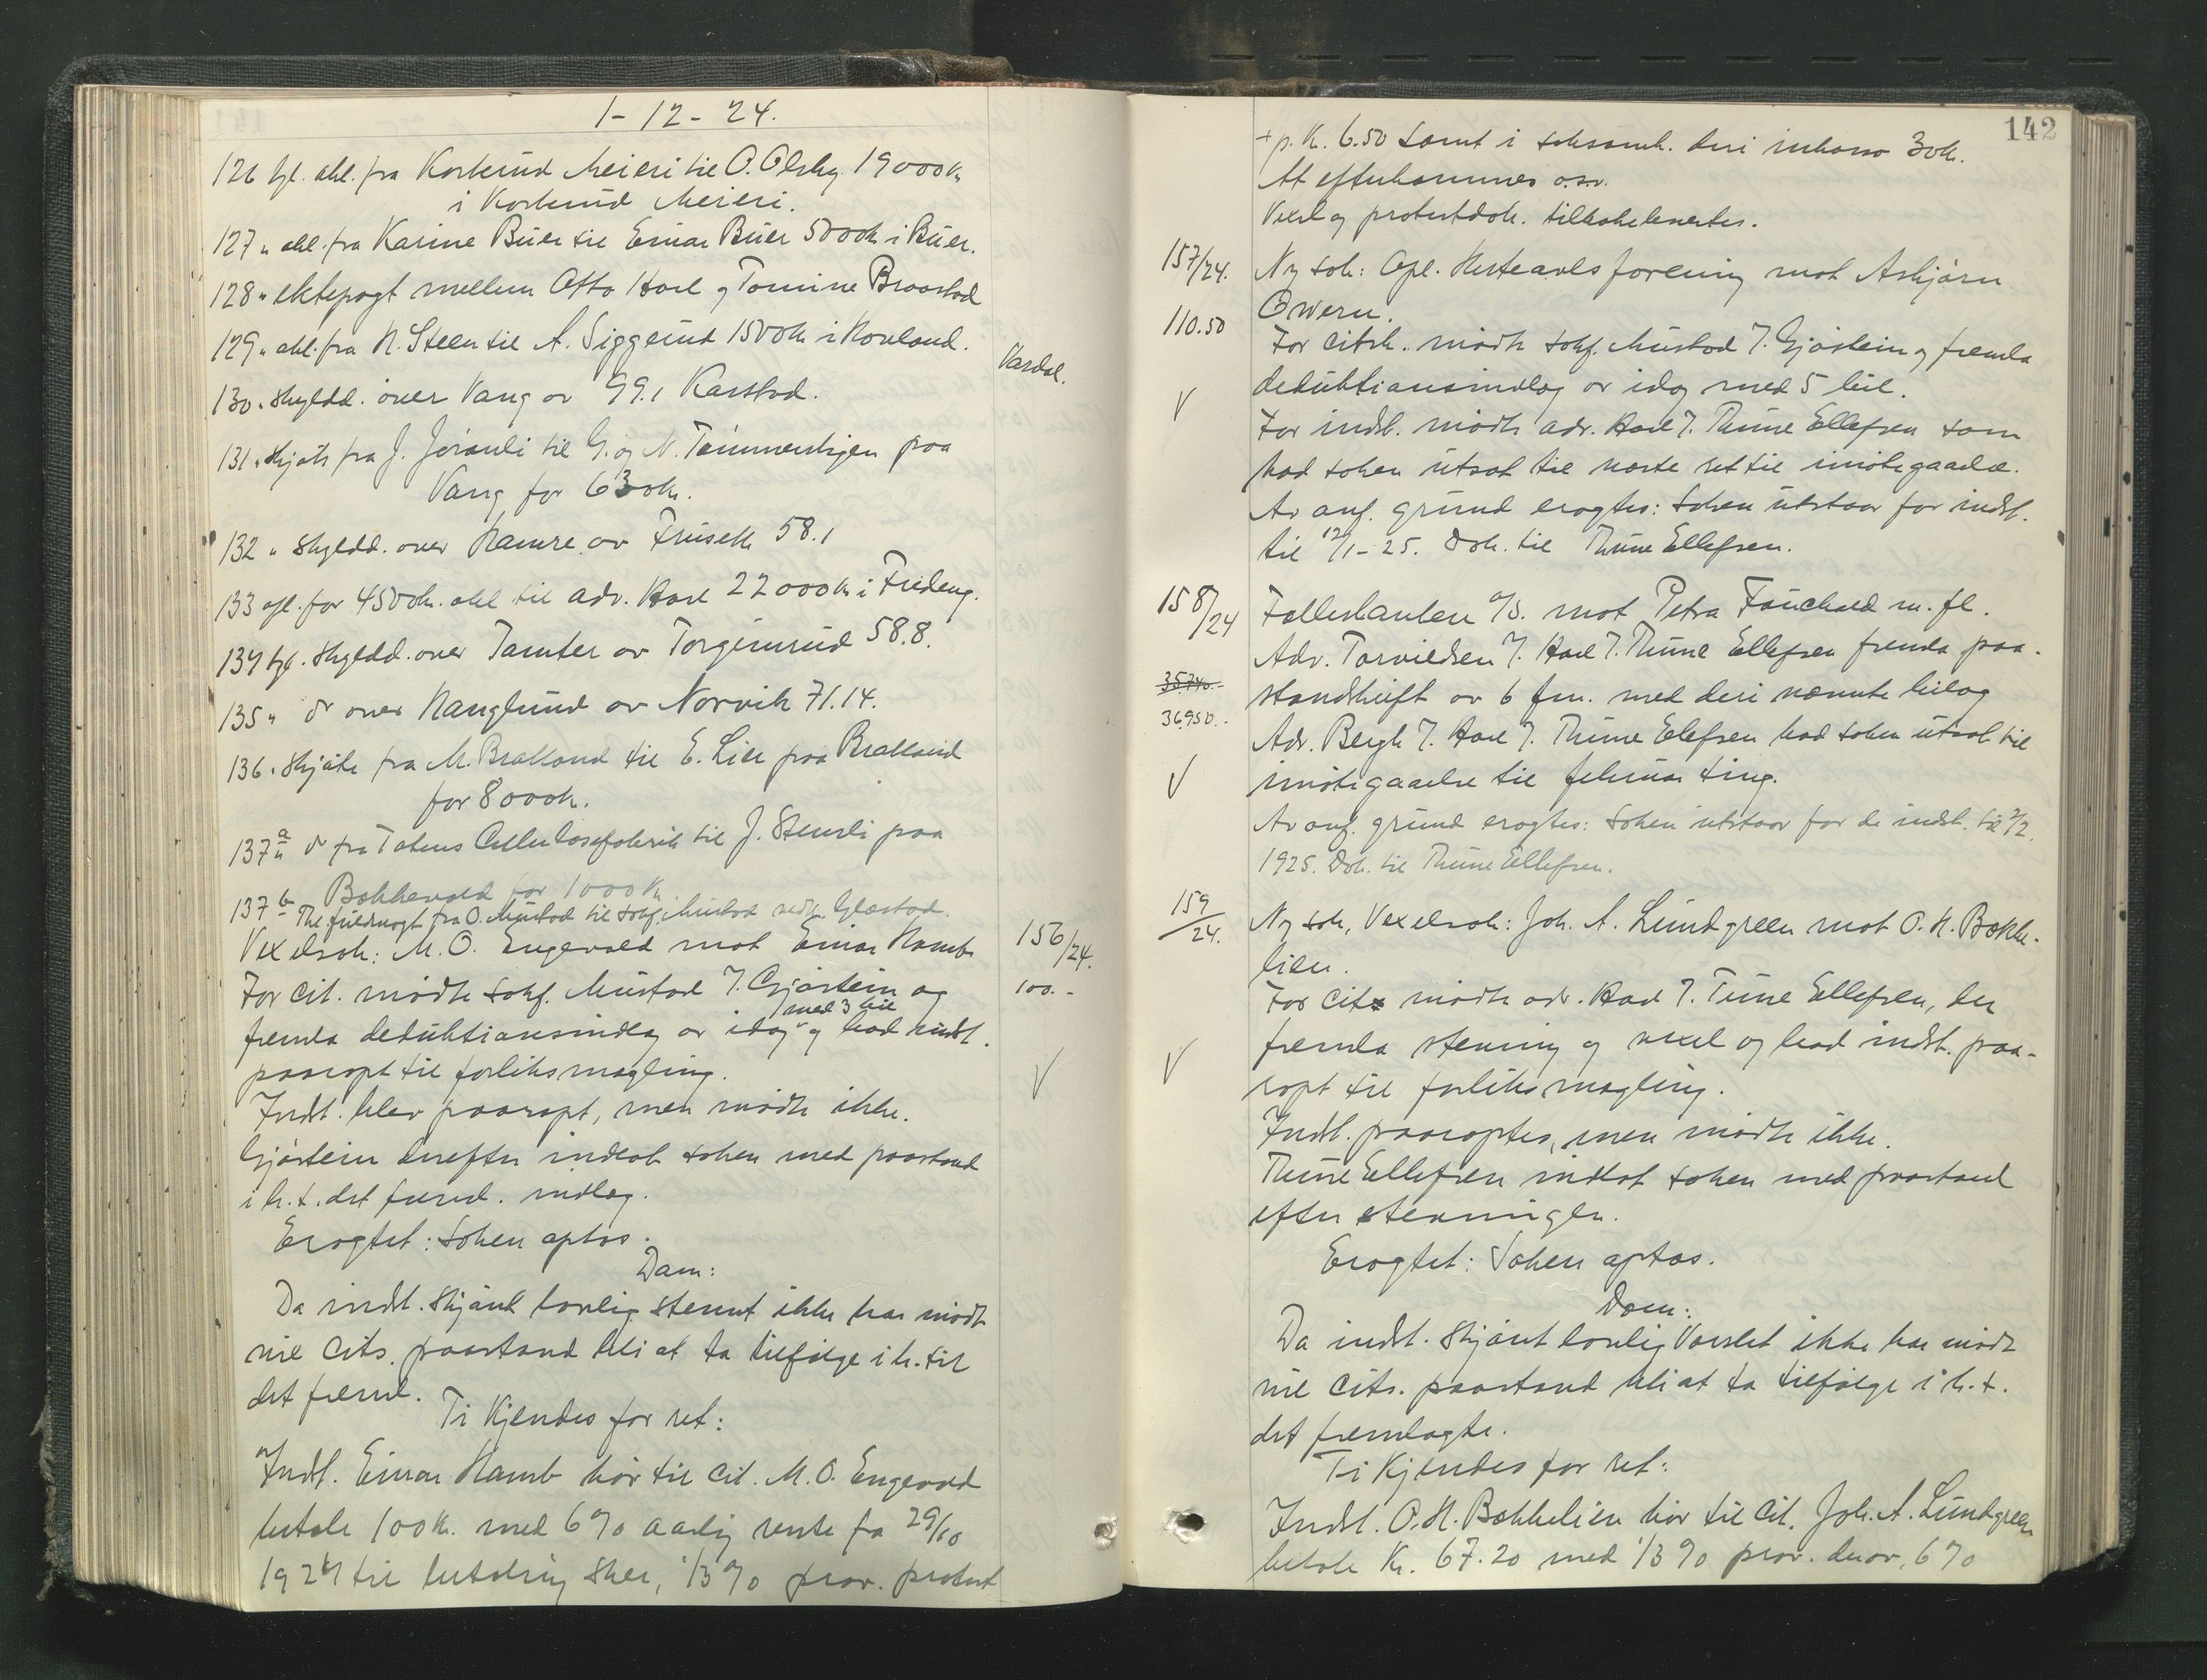 1-12-24.
126 tgl. obl. fra Korterud Meieri til O. Olsby 19000 kr
i Korterud Meieri.
127 " obl. fra Karine Büer til Einar Büer 5000 kr i Büer.
128 " ektepagt mellem Otto Hoel og Tomine Braastad
129 " obl. fra N. Steen til A. Siggerud 1500 kr i
Vardal.
130 " skyldd. over Vang av 99.1 Karstad.
131 " skjøte fra J. til G. og N. Tømmerstigen paa
Vang for 630 kr.
132 " skyldd. over Hamre av 58.1
133 gjl. for 4500 kr. obl til adv. Hoel 22000 kr i Fredeng.
134 tgl. skyldd. over Tamter av Torgimrud 58.8.
135 " do over Hauglund av Norvik 71.14.
136 " skjøte fra M. Bratland til E. Lier paa Bratland
for 8000 kr.
137 a " do fra Totens Cellulosefabrik til J. Stensli paa
Bækkevold for 1000 kr.
137 b Tgl. fuldmagt fra O. Mustad til sakf. Mustad vedk. Glæstad.
156/24.
Vexelsak: M. O. Engevold mot Einar Hamb
100.-
For cit. mødte sakf. Mustad v. Gjøstein og
fremla deduktionsindlæg av idag med 3 bil og bad indst.
paaropt til forliksmægling.
V
Indst. blev paaropt, men mødte ikke.
Gjøstein derefter indlot saken med paastand
i h. t. det freml. indlæg.
Eragtet: Saken optas.
Dom:
Da indst. skjønt lovlig stemt ikke har mødt
vil cits. paastand bli at ta tilfølge i h. til
det freml.
Ti kjendes for ret:
Indst. Einar Hamb bør til cit. M. O. Engevold
betale 100 kr. med 6 % aarlig rente fra 29/10
1924 til betaling sker, 1/3 % prov. protest
142
+ p. kr. 6.50 samt i saksomk. deri inkasso 30 kr.
At efterkommes o.s.v.
Vexel og protestdok. tilbakeleveredes.
157/24.
Ny sak: Opl. Hesteavlsforening mot Asbjørn
Owern.
110.50
For citst. mødte sakf. Mustad v. Gjøstein og fremla
deduktionsindlæg av idag med 5 bil.
V
For indst. mødte adv. Hoel v. Thune Ellefsen som
bad saken utsat til næste ret til imøtegaaelse.
Av anf. grund eragtes: Saken utstaar for indst.
til 12/1-25. Dok. til Thune Ellefsen.
158/24
Fælesbanken A/S. mot Petra Fauchald m. fl.
Adv. Torvildsen v. Hoel v. Thune Ellefsen fremla paa-
35740.-
standskrift av 6 fm. med deri nævnte bilag
36950.-
Adv. Bergh v. Hoel v. Thune Ellefsen bad saken utsat til
V
imøtegaaelse til februar ting.
Av anf. grund eragtes: Saken utstaar for de indst. til 2/2.
1925. Dok. til Thune Ellefsen.
159/24.
Ny sak, Vexelsak: Joh. A. Lundgreen mot O. H. Bække-
lien.
For cits mødte adv. Hoel v. Tune Ellefsen, der
fremla stevning og vexel og bad indst. paa-
V
ropt til forliksmægling.
Indst. paaroptes, men mødte ikke.
Thune Ellefsen indlot saken med paastand
efter stevningen.
Eragtet: Saken optas.
Dom:
Da indst. skjønt lovlig varslet ikke har mødt
vil cits. paastand bli at ta tilfølge i h. t.
det fremlagte.
Ti kjendes for ret:
Indst. O. H. Bækkelien bør til cit. Joh. A. Lundgreen
betale Kr. 67.20 med 1/3 % prov. derav, 6 %